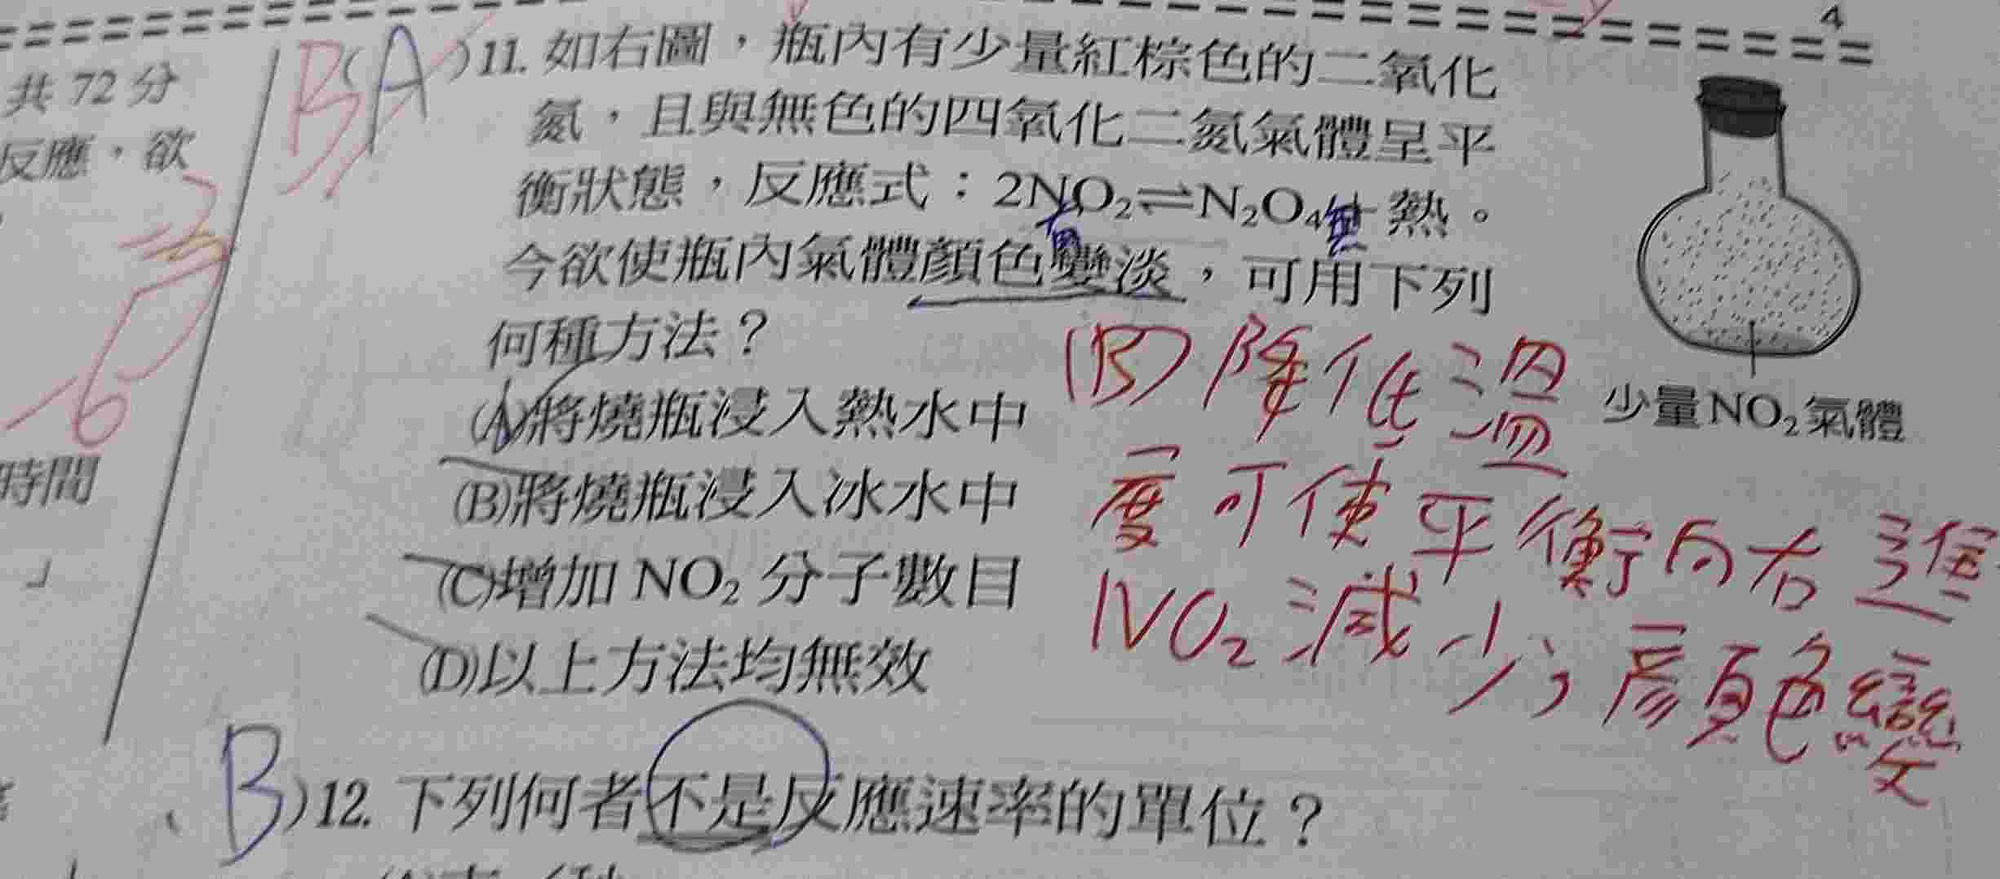 4
共 72 分
反應，欲
時間
」
6
B(A)11. 如右圖，瓶內有少量紅棕色的二氧化
氮，且與無色的四氧化二氮氣體呈平
衡狀態，反應式：2NO₂⇌N₂O₄+ 熱。
今欲使瓶內氣體顏色變淡，可用下列
何種方法？
(A)將燒瓶浸入熱水中
(B)將燒瓶浸入冰水中
(C)增加 NO₂ 分子數目
(D)以上方法均無效
少量NO₂氣體
(B) 降低溫
度可使平衡向右進
NO₂減少，顏色變
B)12. 下列何者不是反應速率的單位？